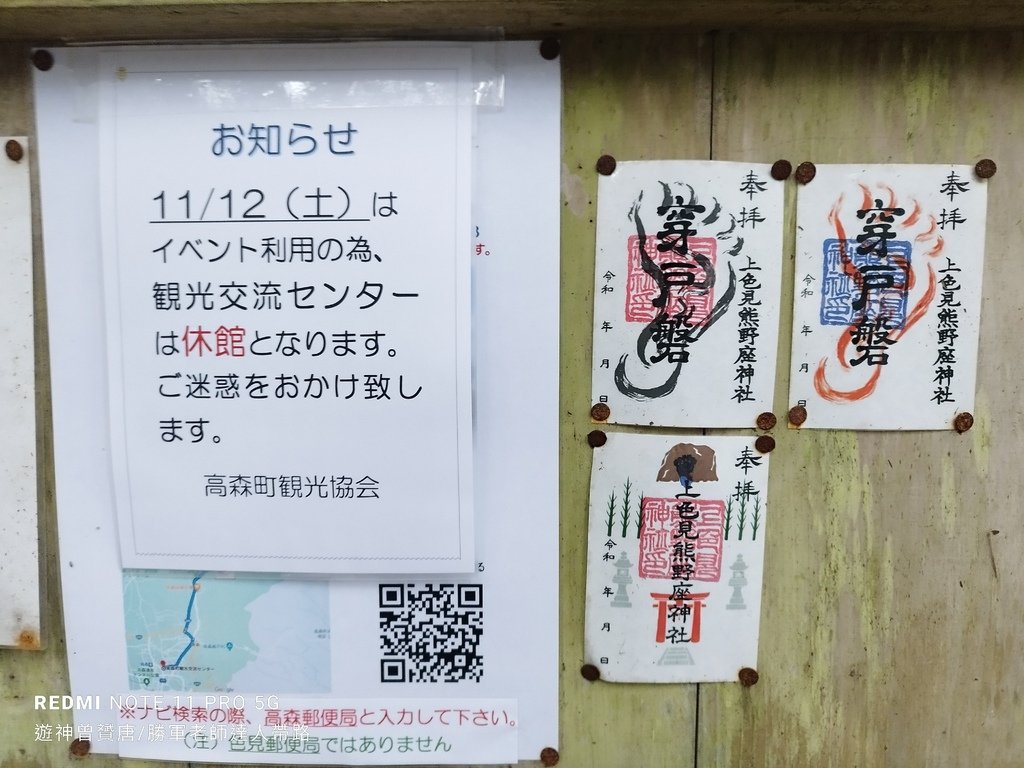 お知らせ
11/12（土）は
イベント利用の為、
観光交流センター
は休館となります。
ご迷惑をおかけ致し
ます。
高森町観光協会
す。
る
※ナビ検索の際、高森郵便局と入力して下さい。
（注）色見郵便局ではありません
奉拝
穿戸磐
上色見熊野座神社
令和 年 月 日
奉拝
穿戸磐
上色見熊野座神社
令和 年 月 日
奉拝
上色見熊野座神社
令和 年 月 日
REDMI NOTE 11 PRO 5G
遊神曾贊唐/勝軍老師達人帶路